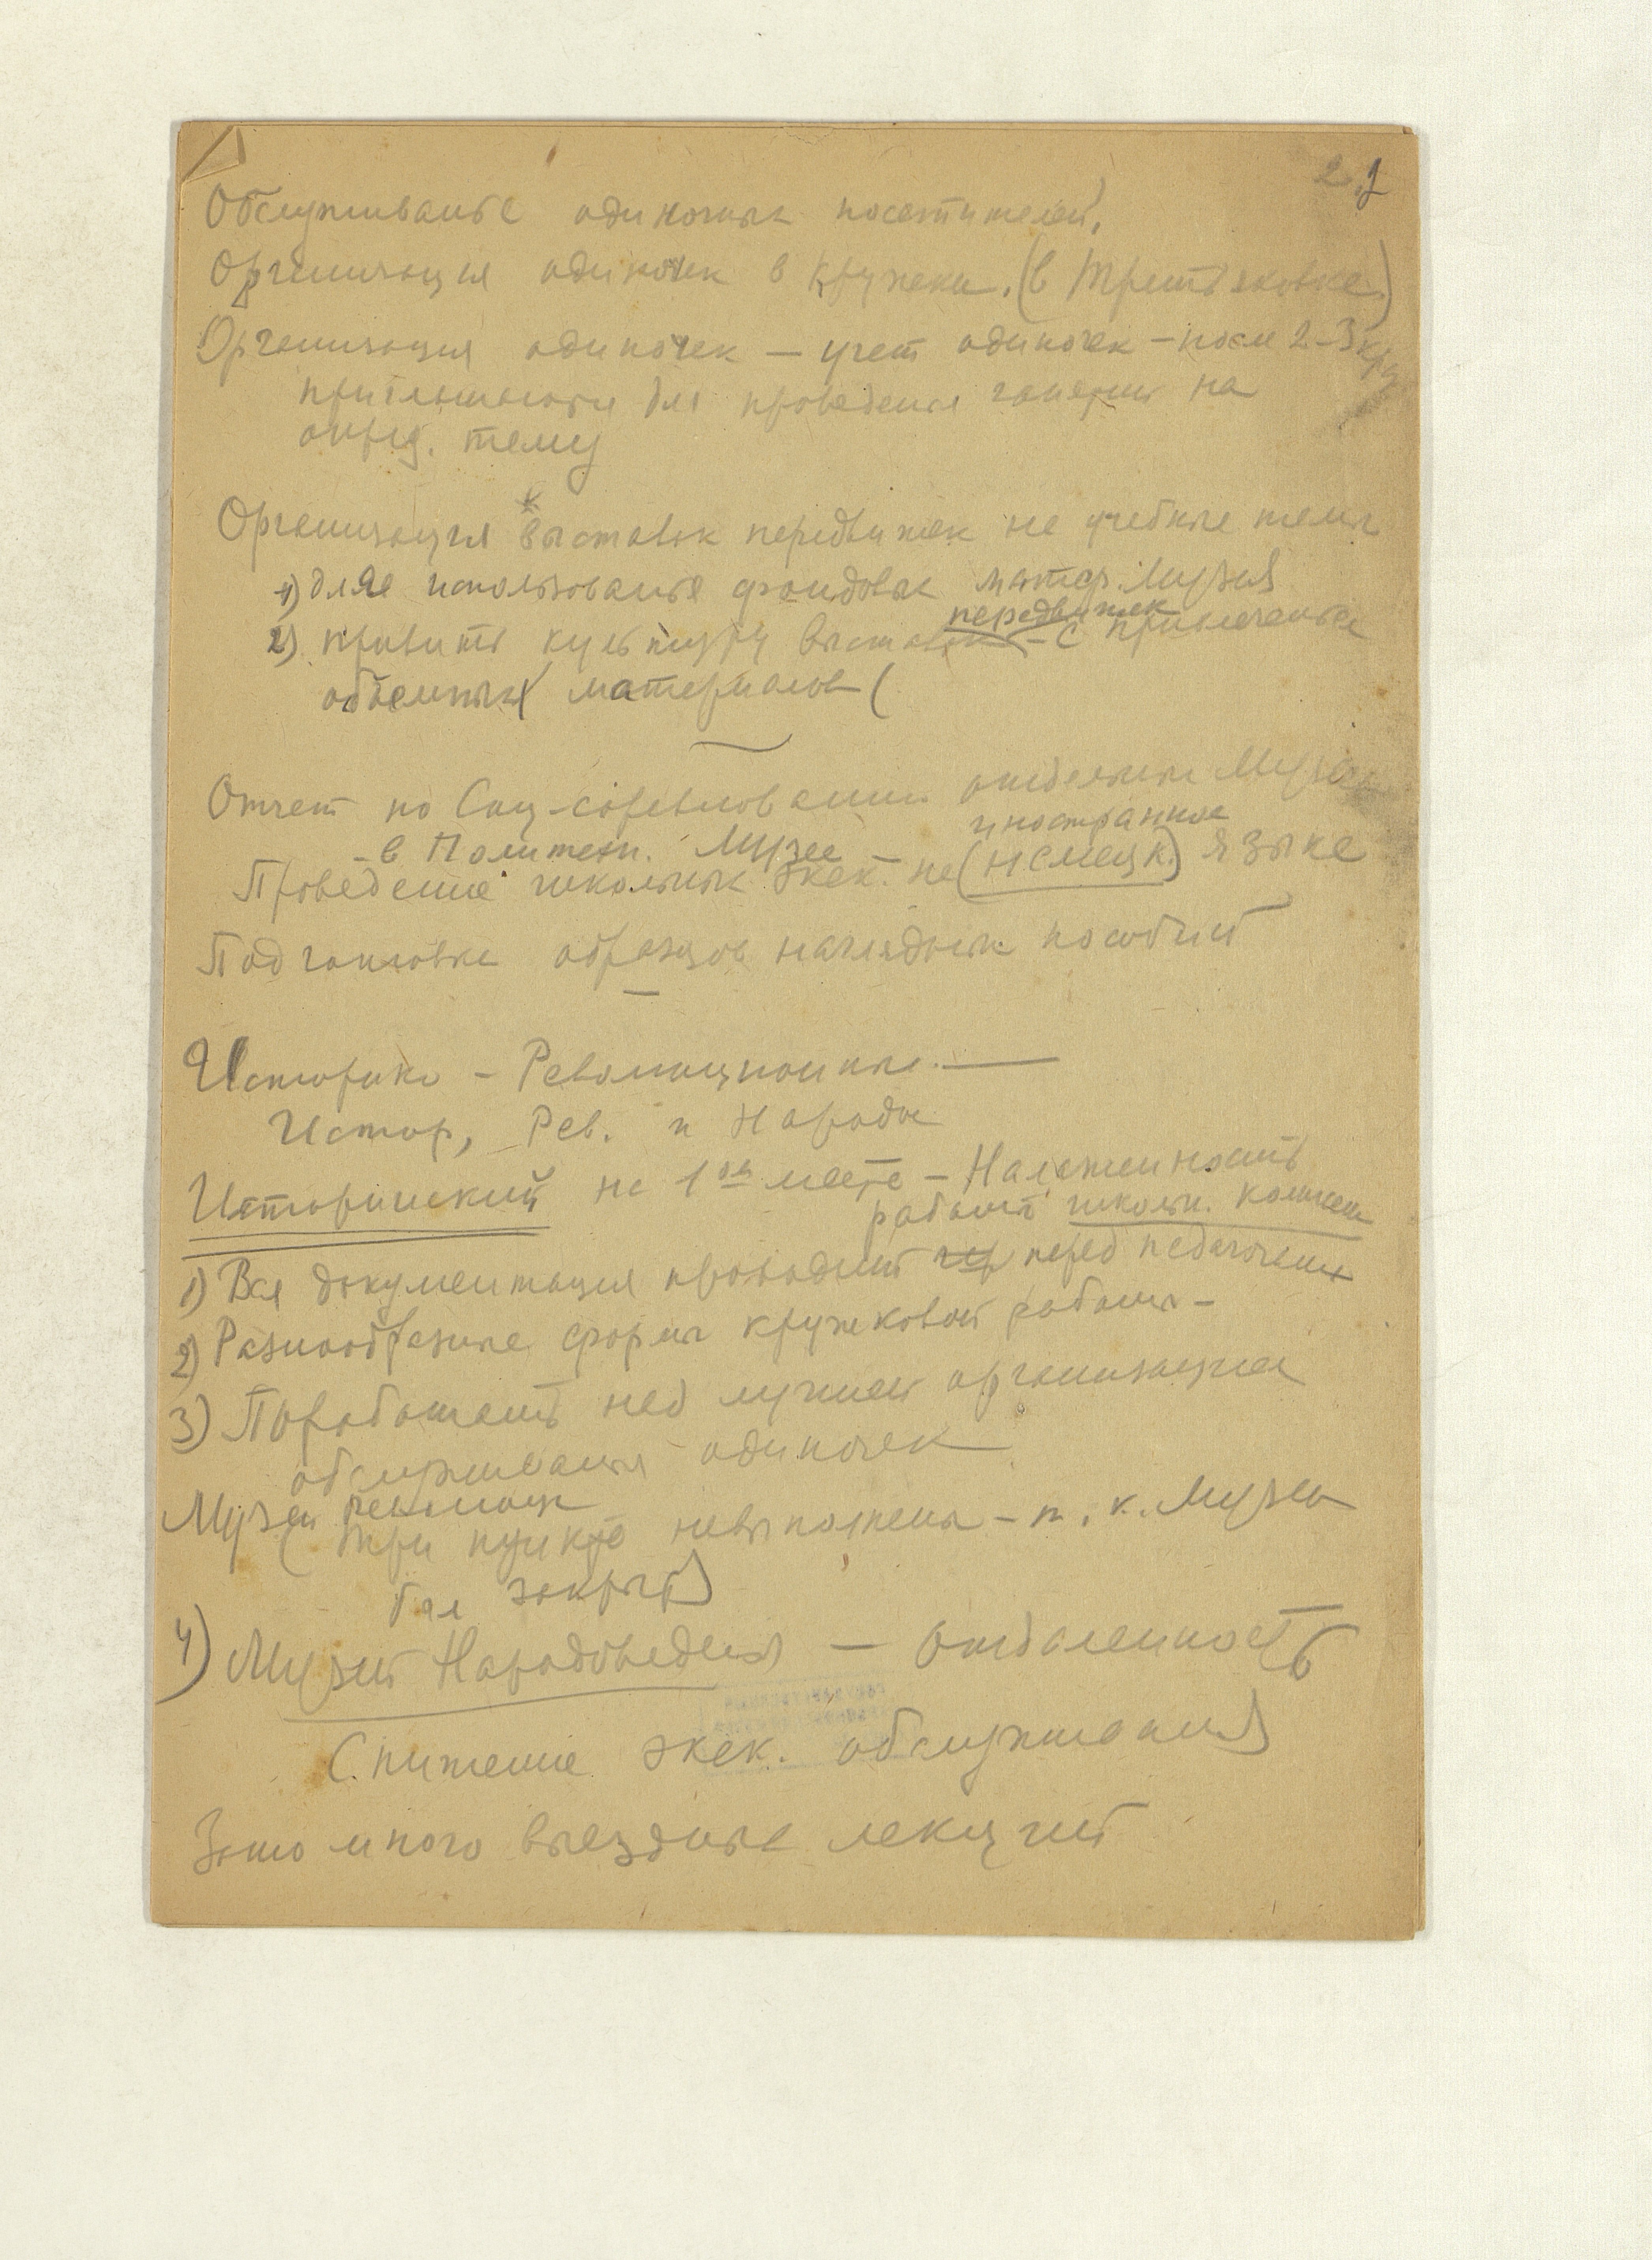 2.
Обслуживанье одиночных посетителей.
Организация одиночек в кружки. (в Третьяковке)
Организация одиночек — учет одиночек — после 2-3 кра
приглашаются для проведения занятий на
опред. тему
Организация выставок передвижек на учебные темы
1) для использованья фондовых матер. Музея
передвижек
2) привить культуру выставок – с привлеченьем
объемных материалов (
Отчет по Соц-соревнованию отдельных Музеев
– в Политехн. Музее – иностранное
Проведение школьных экск. на (немецк.) языке
Подготовка образцов наглядных пособий
Историко – Революционные
Истор, Рев. и Народов
Исторический на 1ом месте – Налаженность
работы школьн. комнаты
1) Вся документация проходит чер перед педагогами
2) Разнообразие форм кружковой работы –
3) Поработать над лучшей организацией
обслуживания одиночек
Музей Революции
(три пункта невыполнены – т. к. Музей
был закрыт)
4) Музей Народоведения — отдаленность
(Снижение экск. обслуживания)
Зато много выездных лекций